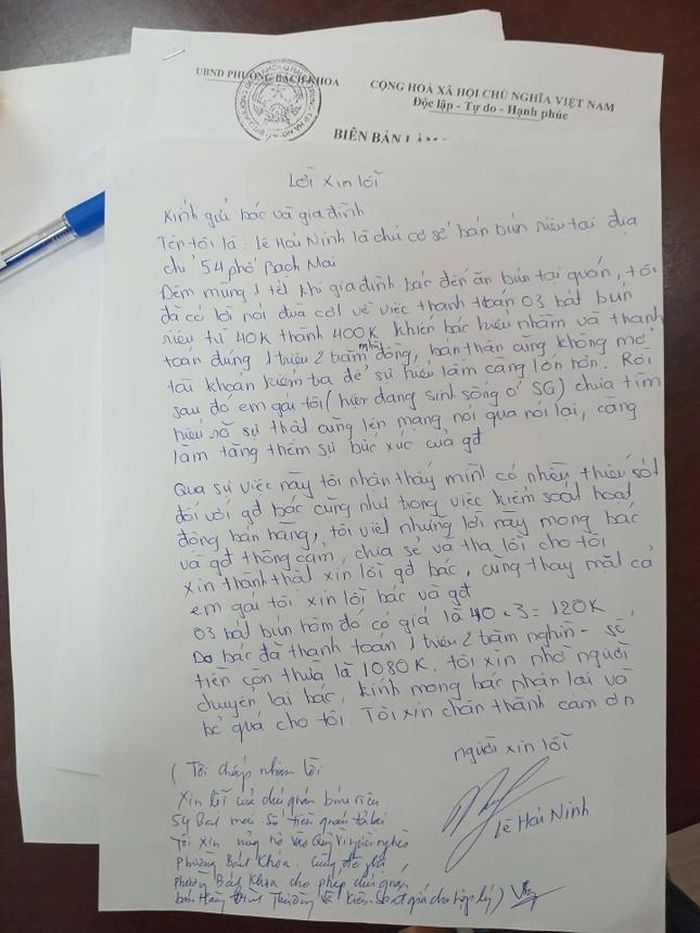 UBND PHƯỜNG BÁCH KHOA
CỘNG HOÀ XÃ HỘI CHỦ NGHĨA VIỆT NAM
Độc lập - Tự do - Hạnh phúc
BIÊN BẢN LÀM
Lời xin lỗi
Kính gửi bác và gia đình
Tên tôi là: Lê Hải Ninh là chủ cơ sở bán bún riêu tại địa
chỉ 54 phố Bạch Mai
Đêm mùng 1 tết khi gia đình bác đến ăn bún tại quán, tôi
đã có lời nói đùa cợt về việc thanh toán 03 bát bún
riêu từ 40K thành 400K khiến bác hiểu nhầm và thanh
toán đúng 1 triệu 2 trăm nghìn đồng, bản thân cũng không mở
tài khoản kiểm tra để sự hiểu lầm càng lớn hơn. Rồi
sau đó em gái tôi (hiện đang sinh sống ở SG) chưa tìm
hiểu rõ sự thật cũng lên mạng nói qua nói lại, càng
làm tăng thêm sự bức xúc của gđ
Qua sự việc này tôi nhận thấy mình có nhiều thiếu sót
đối với gđ bác cũng như trong việc kiểm soát hoạt
động bán hàng, tôi viết những lời này mong bác
và gđ thông cảm, chia sẻ và tha lỗi cho tôi
xin thành thật xin lỗi gđ bác, cùng thay mặt cả
em gái tôi xin lỗi bác và gđ
03 bát bún hôm đó có giá là 40 x 3 = 120K
Do bác đã thanh toán 1 triệu 2 trăm nghìn - số
tiền còn thừa là 1080K. tôi xin nhờ người
chuyển lại bác, kính mong bác nhận lại và
bỏ quá cho tôi. Tôi xin chân thành cảm ơn
người xin lỗi
Lê Hải Ninh
( Tôi chấp nhận lời
xin lỗi của chủ quán bún riêu
54 Bạch mai số tiền quán trả lại
Tôi xin ủng hộ vào Quỹ vì người nghèo
phường Bách Khoa. Cũng đề nghị
phường Bách Khoa cho phép chủ quán
bán hàng bình thường và kiểm soát giá cho hợp lý)